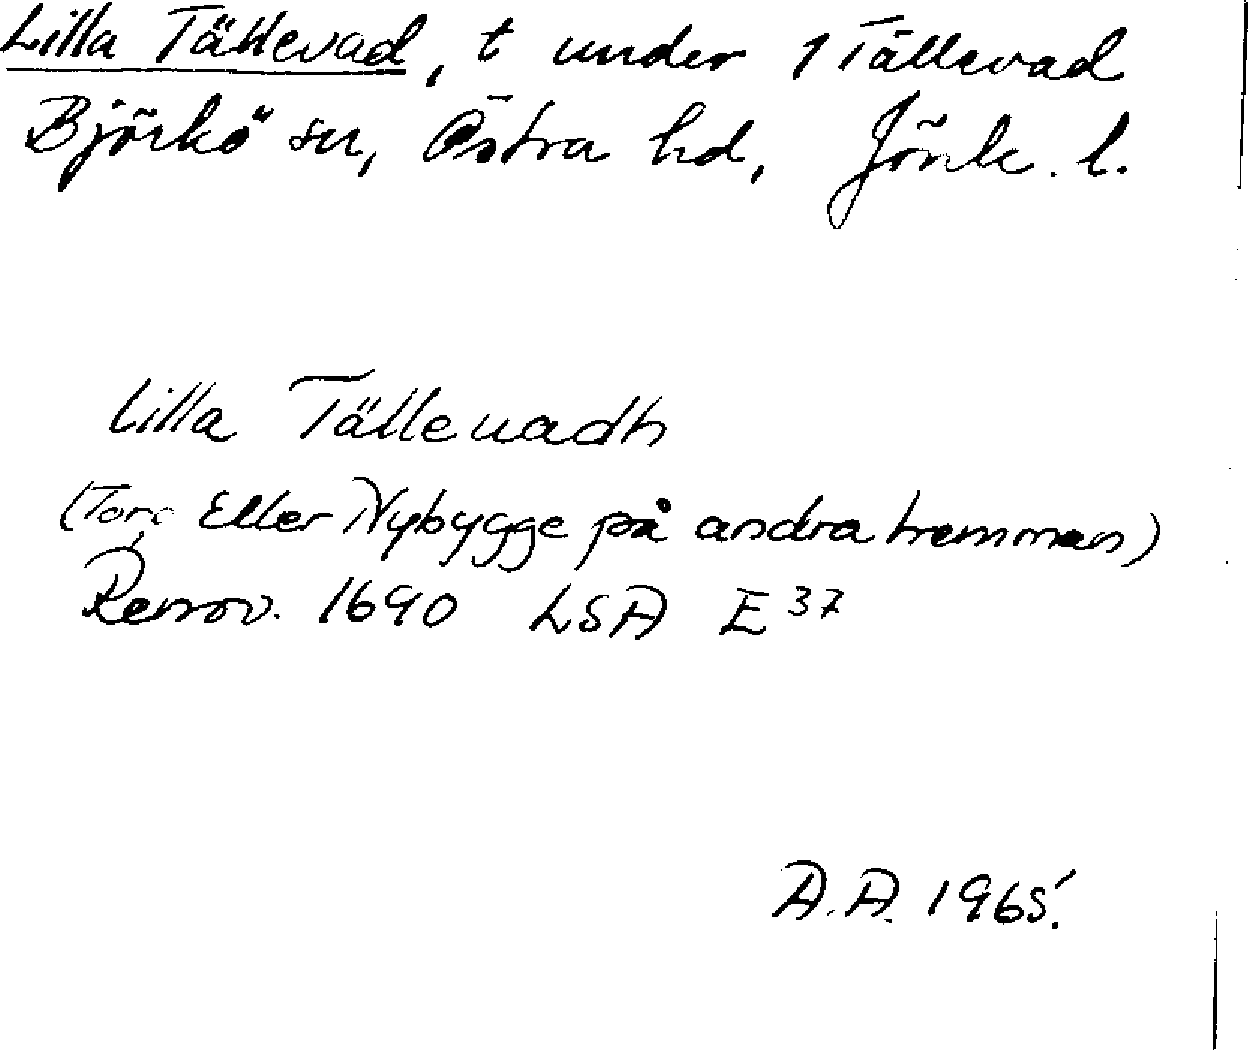 Lilla Tällevad, t under 1 Tällevad
Björkö sn, Östra hd, Jönk. l.
Lilla Tälleuadh
(Torp Eller Nybygge på andra hemman)
Renov. 1690 LSA E 37
A.A. 1965.